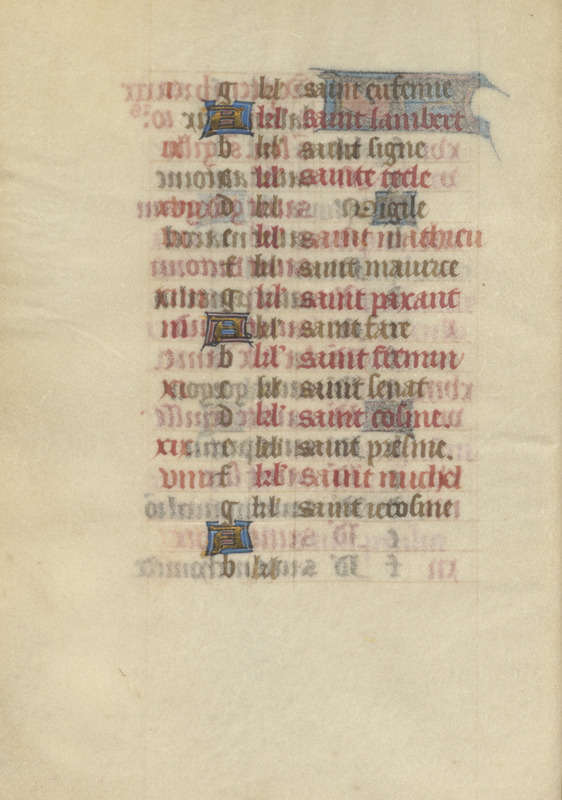 g kl saint eufemie
A kl saint lambert
b kl saint signe
c kl sainte tecle
d kl Vigile
e kl saint mathieu
f kl saint maurice
xiiii g kl saint paxant
iii A kl saint fare
b kl saint fremin
xi c kl saint senat
d kl saint cosme.
xix e kl saint presme.
viii f kl saint michel
g kl saint ierosme
A
b kl